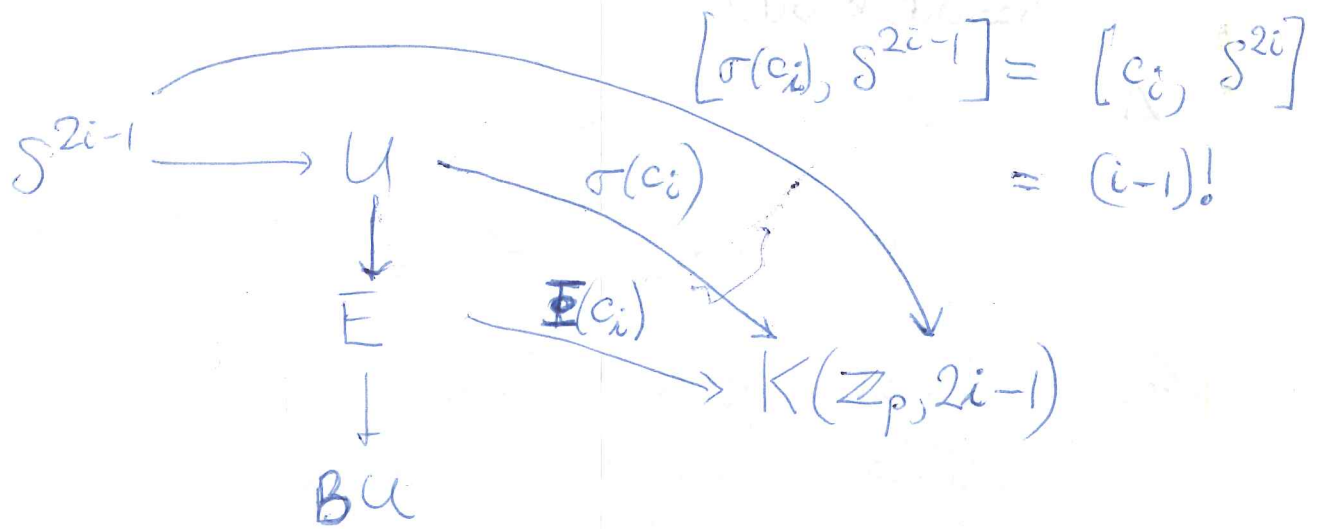 [σ(c_i), S^{2i-1}] = [c_i, S^{2i}]
= (i-1)!
S^{2i-1} → U
σ(c_i)
E
Φ(c_i)
K(ℤ_p, 2i-1)
BU